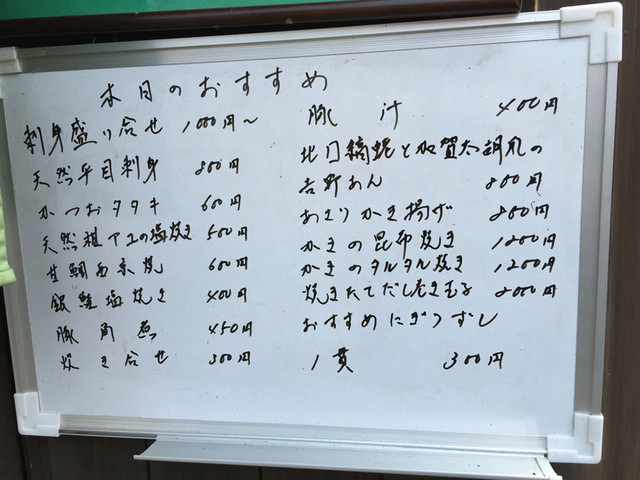 本日のおすすめ
刺身盛り合せ 1000円～
天然平目刺身 800円
かつおタタキ 600円
天然稚アユの塩焼き 500円
甘鯛西京焼 600円
銀鮭塩焼き 400円
豚角煮 450円
炊き合せ 300円
豚汁 400円
と加賀太胡瓜の
吉野あん 800円
あさりかき揚げ 800円
かきの昆布焼き 1200円
かきのタルタル焼き 1200円
焼きたてだしまき玉子 800円
おすすめにぎりずし
1貫 300円